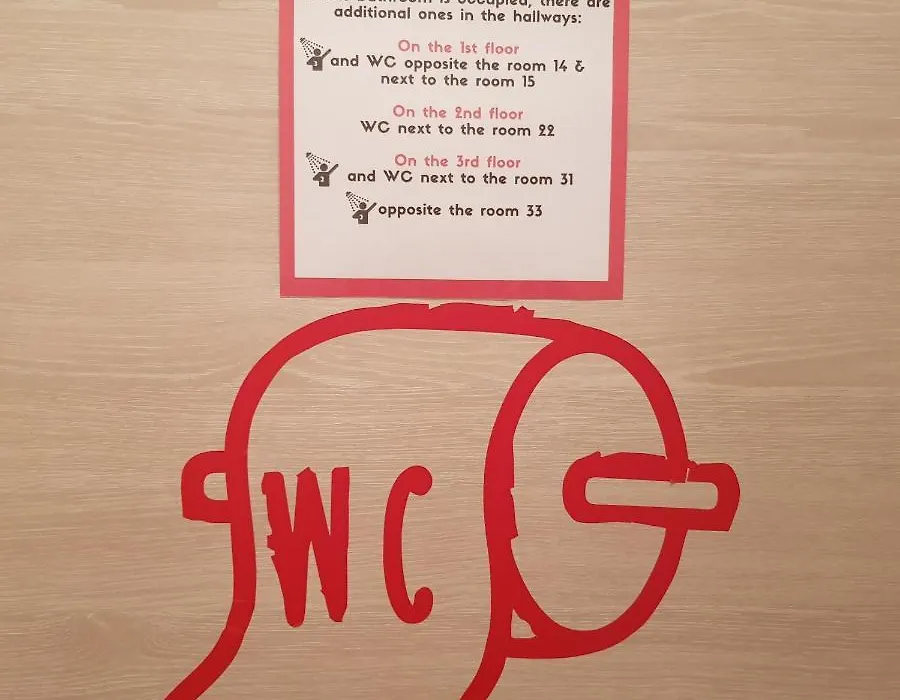 bathroom is occupied, there are
additional ones in the hallways:
On the 1st floor
and WC opposite the room 14 &
next to the room 15
On the 2nd floor
WC next to the room 22
On the 3rd floor
and WC next to the room 31
opposite the room 33
WC